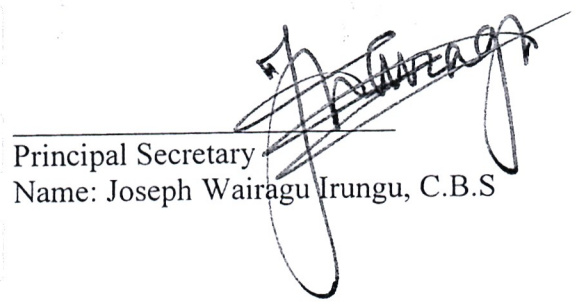 Principal Secretary
Name: Joseph Wairagu Irungu, C.B.S